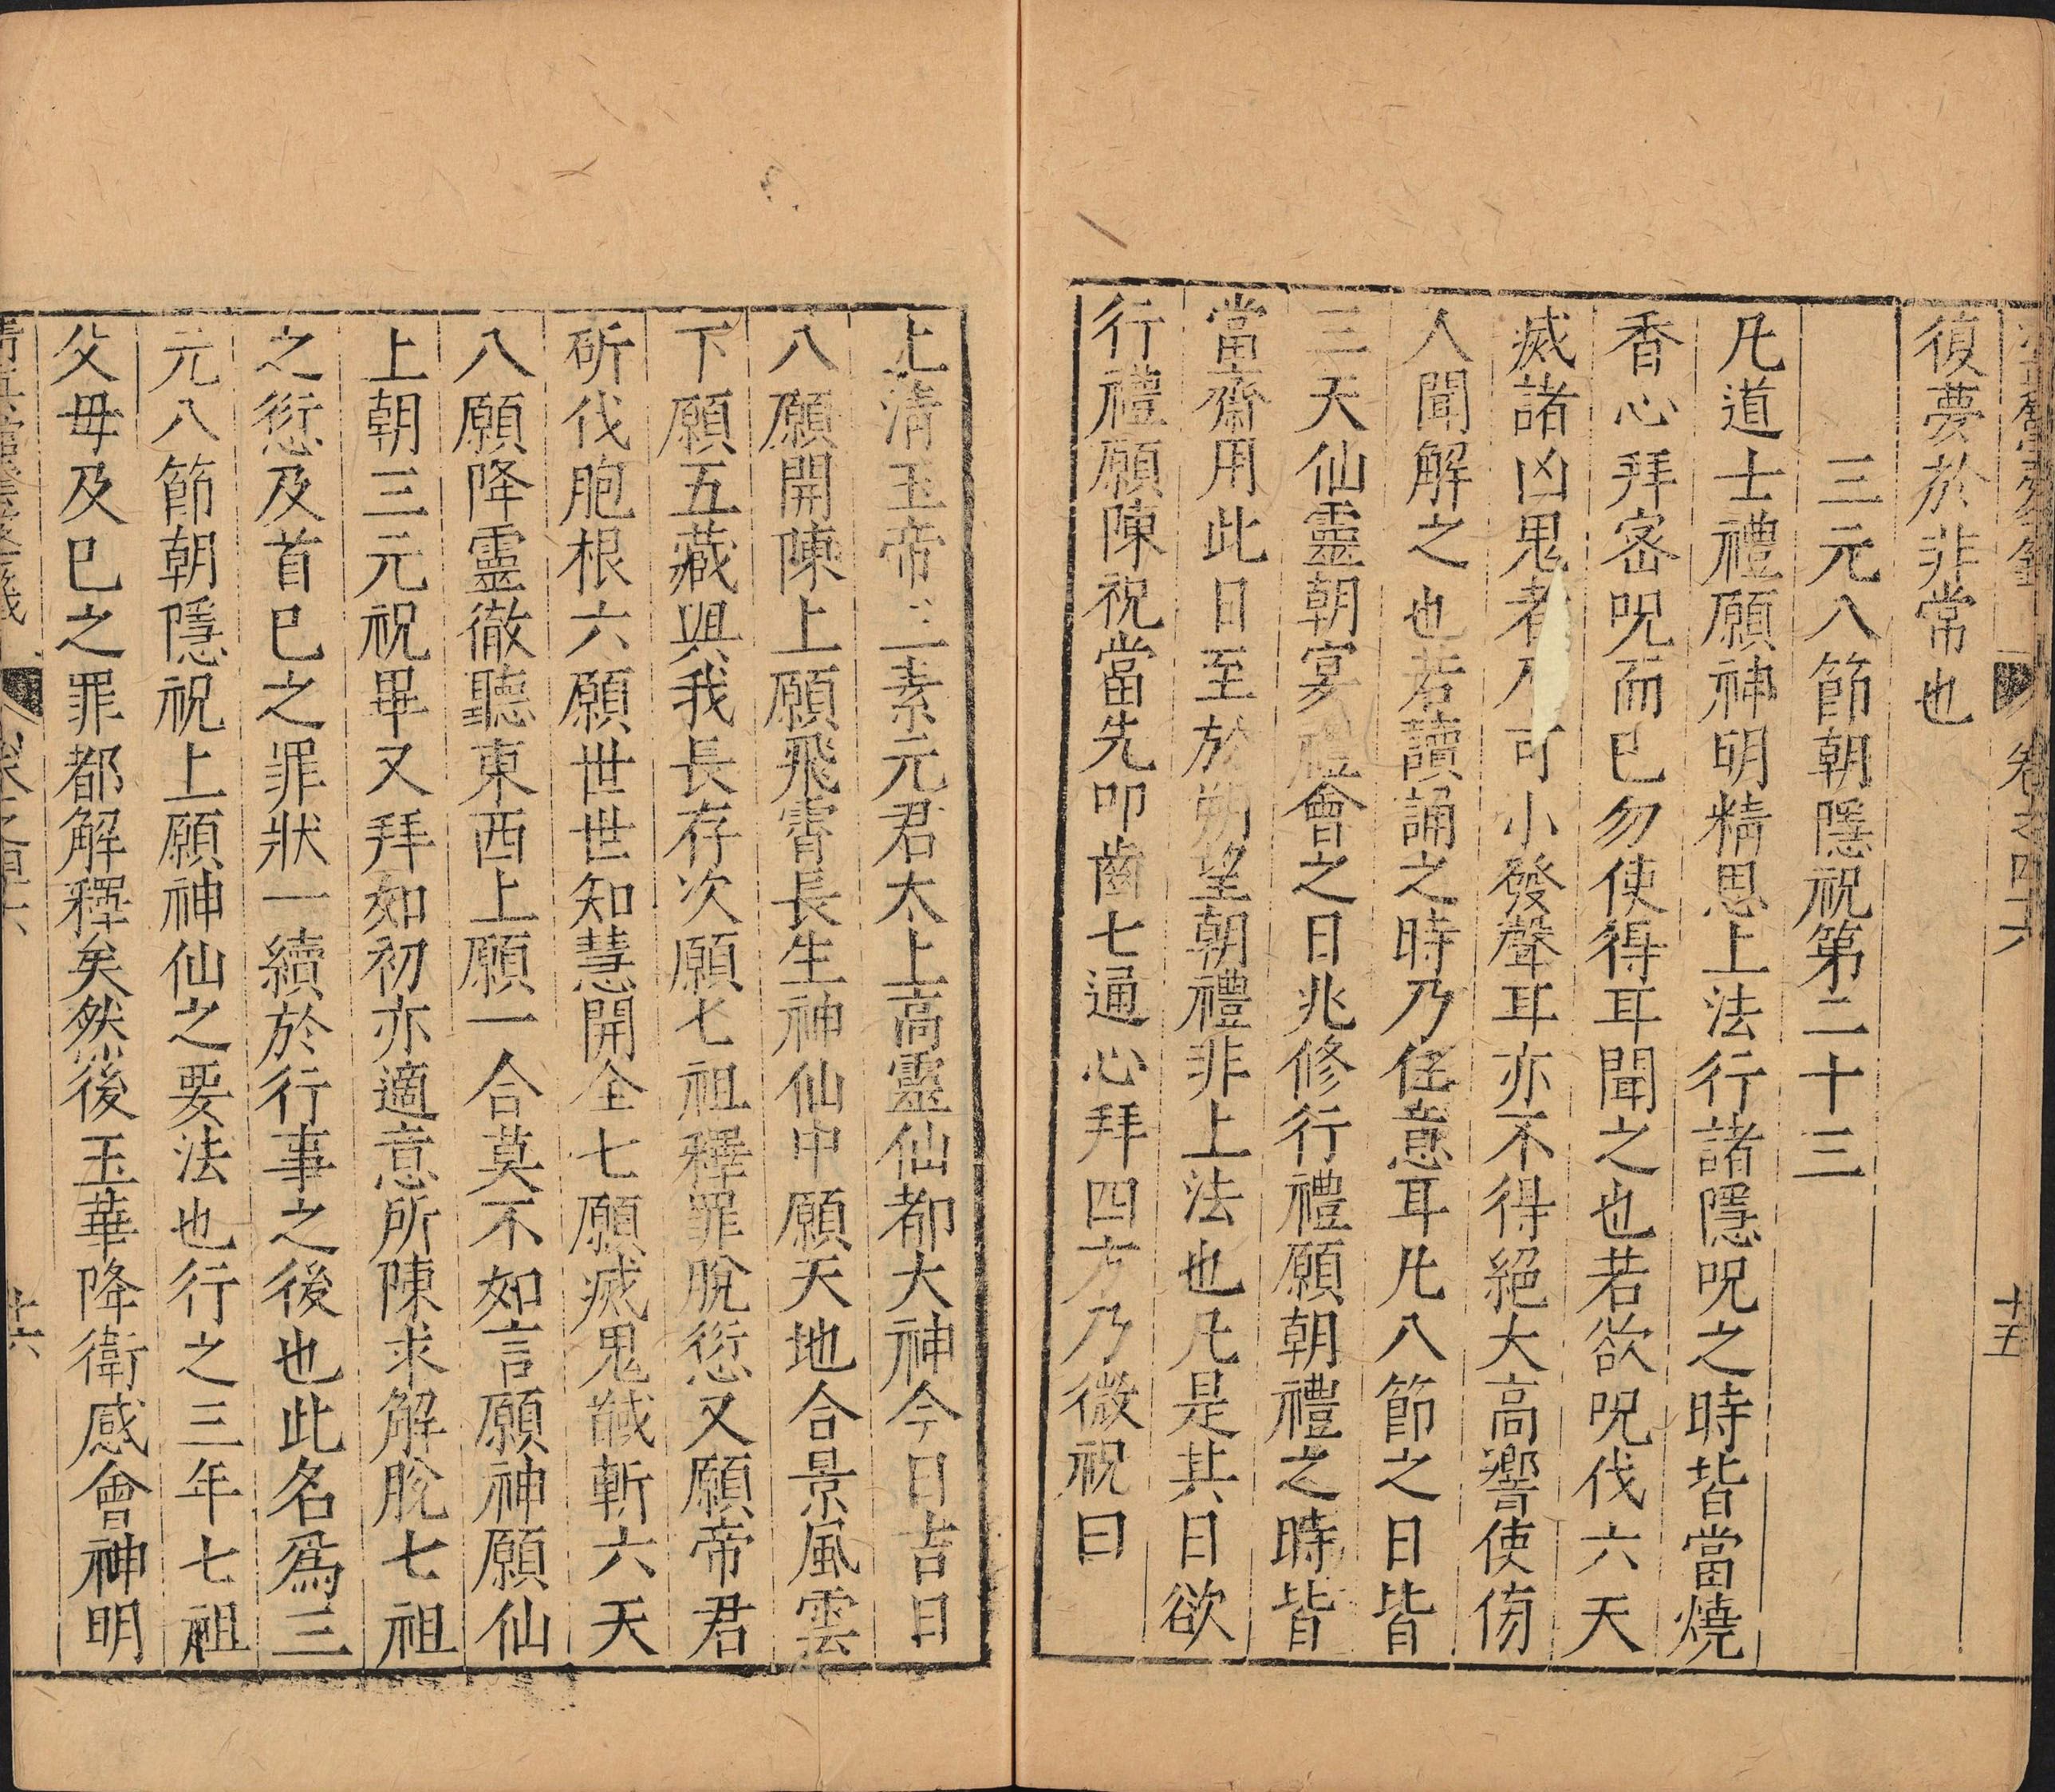 卷之四十六 十五
復夢於非常也
三元八節朝隱祝第二十三
凡道士禮願神明精思上法行諸隱呪之時皆當燒
香心拜密呪而已勿使得耳聞之也若欲呪伐六天
滅諸凶鬼者 可小發聲耳亦不得絕大高響使傍
人聞解之也若讀誦之時乃任意耳凡八節之日皆
三天仙靈朝宴禮會之日兆修行禮願朝禮之時皆
當齋用此日至於朔望朝禮非上法也凡是其日欲
行禮願陳祝當先叩齒七通心拜四方乃微祝曰
上清玉帝三素元君太上高靈仙都大神今日吉日
八願開陳上願飛霄長生神仙中願天地合景風雲
下願五藏與我長存次願七祖釋罪脫愆又願帝君
斫伐胞根六願世世知慧開全七願滅鬼馘斬六天
八願降靈徹聽東西上願一合莫不如言願神願仙
上朝三元祝畢又拜如初亦適意所陳求解脫七祖
之愆及首已之罪狀一續於行事之後也此名爲三
元八節朝隱祝上願神仙之要法也行之三年七祖
父母及已之罪都解釋矣然後玉華降衛感會神明
十六